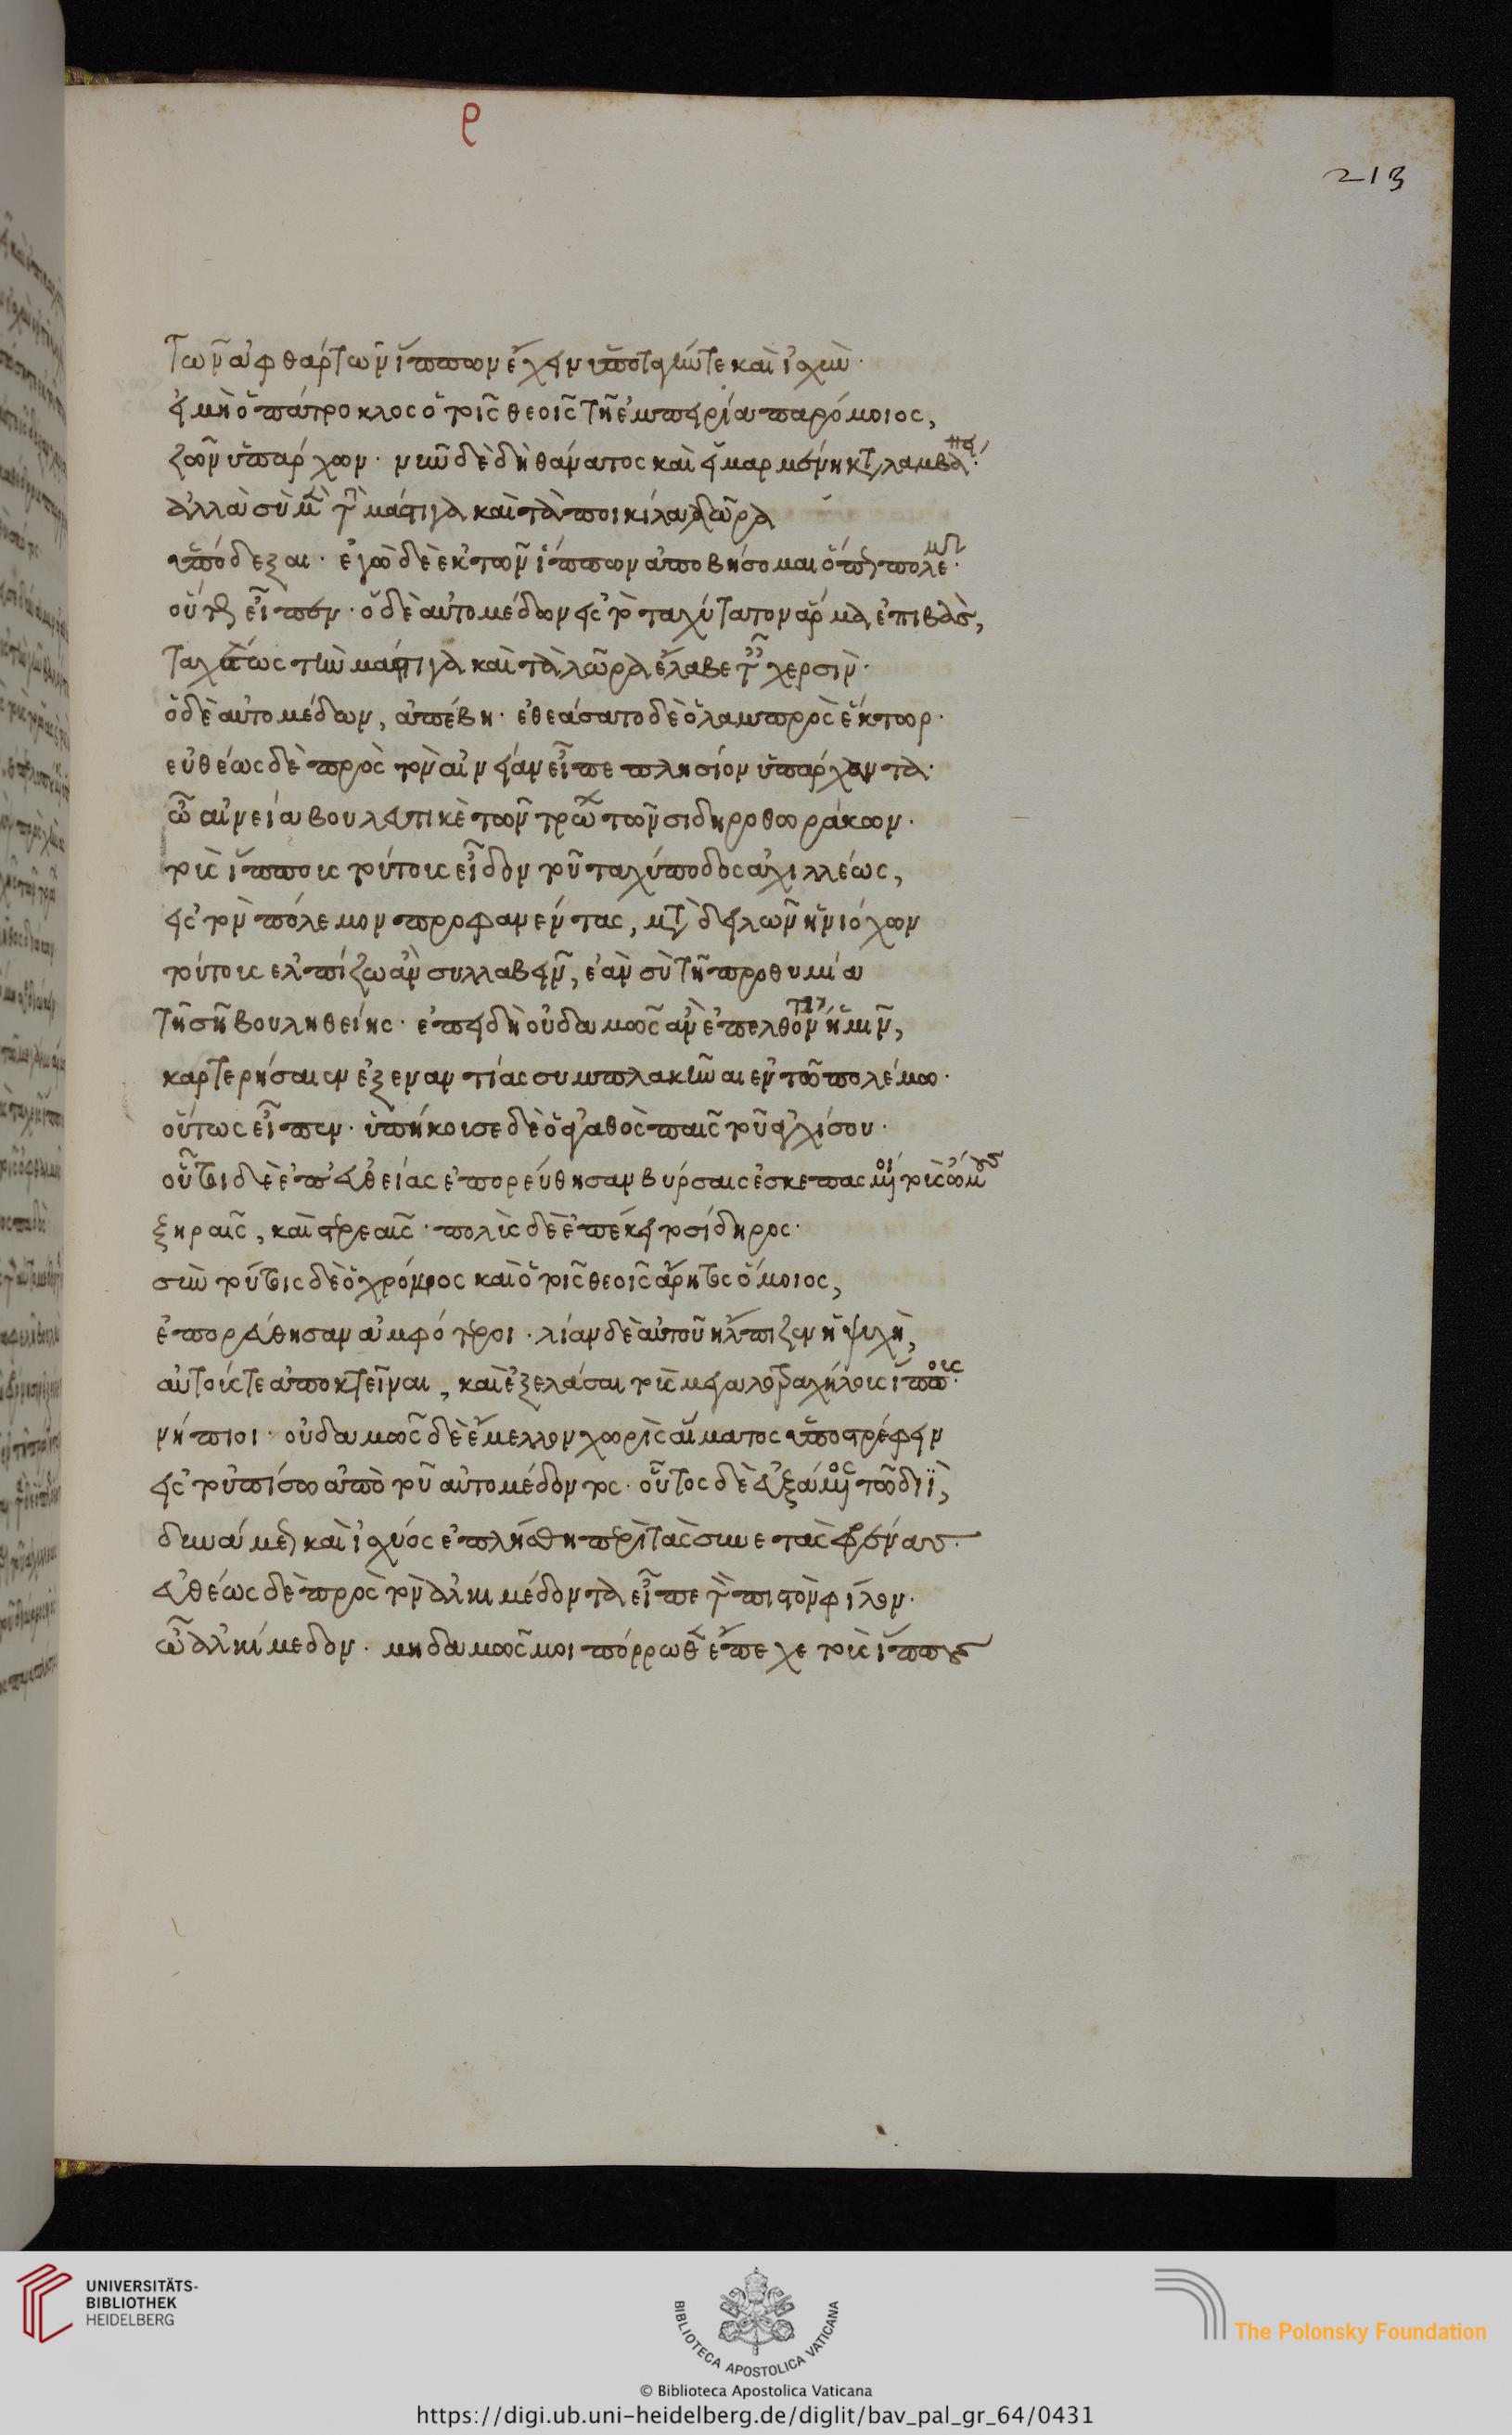 ρ
213
τῶν ἀφθάρτων ἵππων ἔχειν ὑποταγήν τε καὶ ἰσχὺν·
εἰ μὴ ὁ πάτροκλος ὁ τοῖς θεοῖς τῇ ἐμπειρία παρόμοιος,
ζῶν ὑπάρχων· νῦν δὲ δὴ θάνατος καὶ εἱμαρμένη καταλαμβάνει·
ἀλλὰ σὺ μὲν τὴν μάστιγα καὶ τὰ ποικίλα λῶρα
ὑπόδεξαι· ἐγὼ δὲ ἐκ τῶν ἵππων ἀποβήσομαι ὅπως πολεμῶ·
οὕτως εἶπεν· ὁ δὲ αὐτομέδων εἰς τὸ ταχύτατον ἅρμα ἐπιβὰς,
ταχέως τὴν μάστιγα καὶ τὰ λῶρα ἔλαβε ταῖς χερσὶν·
ὁ δὲ αὐτομέδων, ἀπέβη· ἐθεάσατο δὲ ὁ λαμπρὸς ἕκτωρ·
εὐθέως δὲ πρὸς τὸν αἰνείαν εἶπε πλησίον ὑπάρχοντα·
ὦ αἰνεία βουλευτικὲ τῶν τρώων τῶν σιδηροθωράκων·
τοὺς ἵππους τούτους εἶδον τοῦ ταχύποδος ἀχιλλέως,
εἰς τὸν πόλεμον προφανέντας, μετὰ δειλῶν ἡνιόχων
τούτους ἐλπίζω ἂν συλλαβεῖν, ἐὰν σὺ τῇ προθυμία
τῇ σῇ βουληθείης· ἐπειδὴ οὐδαμῶς ἂν ἐπελθόντων ἡμῖν,
καρτερήσαιεν ἐξεναντίας συμπλακῆναι ἐν τῶ πολέμω·
οὕτως εἶπεν· ὑπήκουσε δὲ ὁ ἀγαθὸς παῖς τοῦ ἀγχίσου·
οὗτοι δὲ ἐπ' εὐθείας ἐπορεύθησαν βύρσαις ἐσκεπασμένοι τοὺς ὤμους
ξηραῖς, καὶ στερεαῖς· πολὺς δὲ ἐπέκειτο σίδηρος·
σὺν τούτοις δὲ ὁ χρόμιος καὶ ὁ τοῖς θεοῖς ἄρητος ὅμοιος,
ἐπορεύθησαν ἀμφότεροι· λίαν δὲ αὐτοῦ ἤλπιζεν ἡ ψυχὴ,
αὐτούς τε ἀποκτεῖναι, καὶ ἐξελάσαι τοὺς μεγαλοτραχήλους ἵππους·
νήπιοι· οὐδαμῶς δὲ ἔμελλον χωρὶς αἵματος ὑποστρέφειν
εἰς τὀυπίσω ἀπὸ τοῦ αὐτομέδοντος· οὗτος δὲ εὐξάμενος τῶ διῒ,
δυνάμεως καὶ ἰσχύος ἐπλήσθη περὶ τὰς συνετὰς φρένας·
εὐθέως δὲ πρὸς τὸν ἀλκιμέδοντα εἶπε τὸν πιστὸν φίλον·
ὦ ἀλκίμεδον· μηδαμῶς μοι πόρρωθεν ἔπεχε τοὺς ἵππους
UNIVERSITÄTS-
BIBLIOTHEK
HEIDELBERG
BIBLIOTECA APOSTOLICA VATICANA
The Polonsky Foundation
© Biblioteca Apostolica Vaticana
https://digi.ub.uni-heidelberg.de/diglit/bav_pal_gr_64/0431